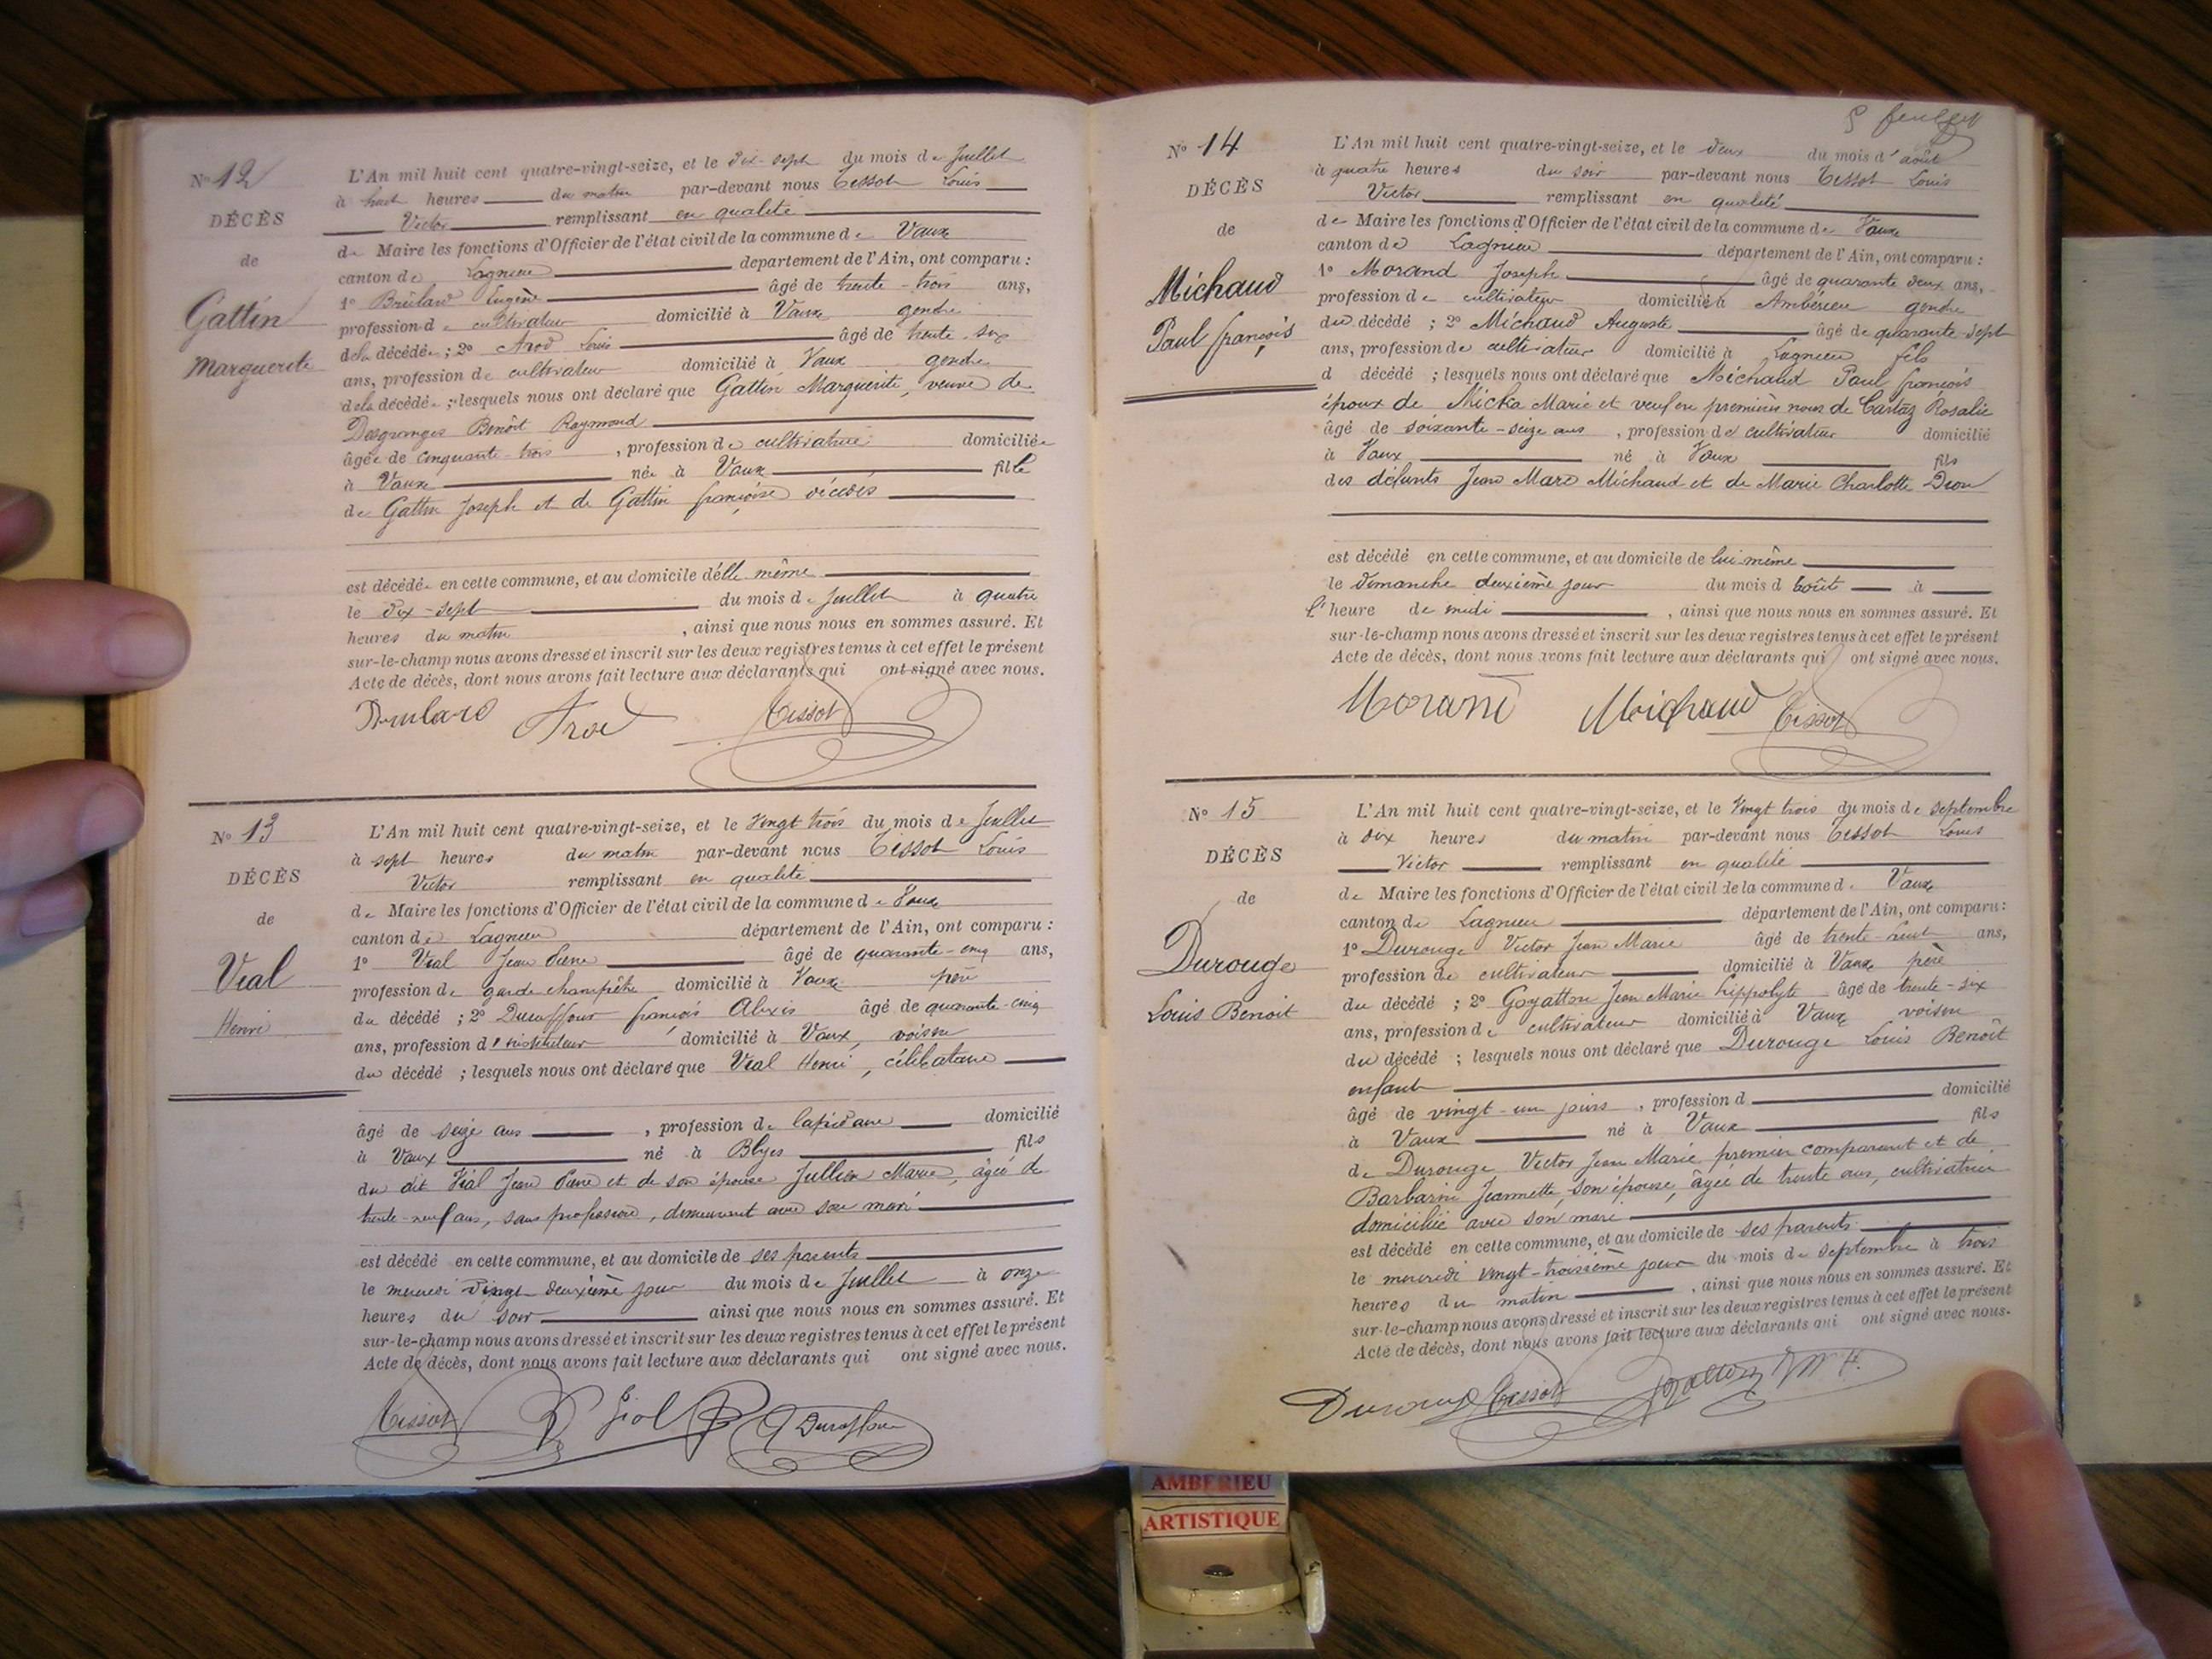 N° 12
DÉCÈS
de
Gattin
Marguerite
L'An mil huit cent quatre-vingt-seize, et le Dix-sept du mois de Juillet
à huit heures du matin par-devant nous Tissot Louis
Victor remplissant en qualité
de Maire les fonctions d'Officier de l'état civil de la commune de Vaux
canton de Lagnieu département de l'Ain, ont comparu :
1° Brulard Eugène âgé de trente-trois ans,
profession de cultivateur domicilié à Vaux gendre
de la décédée ; 2° Arod Louis âgé de trente-six
ans, profession de cultivateur domicilié à Vaux gendre
de la décédée ; lesquels nous ont déclaré que Gattin Marguerite, veuve de
Desgranges Benoît Raymond
âgée de cinquante-trois , profession de cultivatrice domiciliée
à Vaux née à Vaux fille
de Gattin Joseph et de Gattin françoise décédés
est décédée en cette commune, et au domicile d'elle même
le dix-sept du mois de Juillet à quatre
heures du matin , ainsi que nous nous en sommes assuré. Et
sur-le-champ nous avons dressé et inscrit sur les deux registres tenus à cet effet le présent
Acte de décès, dont nous avons fait lecture aux déclarants qui ont signé avec nous.
Brulard Arod Tissot
N° 13
DÉCÈS
de
Vial
Henri
L'An mil huit cent quatre-vingt-seize, et le Vingt trois du mois de Juillet
à sept heures du matin par-devant nous Tissot Louis
Victor remplissant en qualité
de Maire les fonctions d'Officier de l'état civil de la commune de Vaux
canton de Lagnieu département de l'Ain, ont comparu :
1° Vial Jean Pierre âgé de quarante-cinq ans,
profession de garde champêtre domicilié à Vaux père
du décédé ; 2° Duraffour françois Alexis âgé de quarante-cinq
ans, profession d'instituteur domicilié à Vaux, voisin
du décédé ; lesquels nous ont déclaré que Vial Henri, célibataire
âgé de seize ans , profession de lapidaire domicilié
à Vaux né à Blyes fils
du dit Vial Jean Pierre et de son épouse Jullien Marie, âgée de
trente-neuf ans, sans profession, demeurant avec son mari
est décédé en cette commune, et au domicile de ses parents
le mercredi vingt deuxième jour du mois de Juillet à onze
heures du soir ainsi que nous nous en sommes assuré. Et
sur-le-champ nous avons dressé et inscrit sur les deux registres tenus à cet effet le présent
Acte de décès, dont nous avons fait lecture aux déclarants qui ont signé avec nous.
Tissot Duraffour
5 feuillet
N° 14
DÉCÈS
de
Michaud
Paul françois
L'An mil huit cent quatre-vingt-seize, et le deux du mois d'août
à quatre heures du soir par-devant nous Tissot Louis
Victor remplissant en qualité
de Maire les fonctions d'Officier de l'état civil de la commune de Vaux
canton de Lagnieu département de l'Ain, ont comparu :
1° Morand Joseph âgé de quarante deux ans,
profession de cultivateur domicilié à Ambérieu gendre
du décédé ; 2° Michaud Auguste âgé de quarante-sept
ans, profession de cultivateur domicilié à Lagnieu fils
d décédé ; lesquels nous ont déclaré que Michaud Paul françois
époux de Micka Marie et veuf en premières noces de Cartaz Rosalie
âgé de soixante-seize ans , profession de cultivateur domicilié
à Vaux né à Vaux fils
des défunts Jean Marc Michaud et de Marie Charlotte Dron
est décédé en cette commune, et au domicile de lui-même
le dimanche deuxième jour du mois d'août à
l'heure de midi , ainsi que nous nous en sommes assuré. Et
sur-le-champ nous avons dressé et inscrit sur les deux registres tenus à cet effet le présent
Acte de décès, dont nous avons fait lecture aux déclarants qui ont signé avec nous.
Morand Michaud Tissot
N° 15
DÉCÈS
de
Durouge
Louis Benoit
L'An mil huit cent quatre-vingt-seize, et le Vingt trois du mois de Septembre
à dix heures du matin par-devant nous Tissot Louis
Victor remplissant en qualité
de Maire les fonctions d'Officier de l'état civil de la commune de Vaux
canton de Lagnieu département de l'Ain, ont comparu :
1° Durouge Victor Jean Marie âgé de trente-huit ans,
profession de cultivateur domicilié à Vaux père
du décédé ; 2° Goyatton Jean Marie hippolyte âgé de trente-six
ans, profession de cultivateur domicilié à Vaux voisin
du décédé ; lesquels nous ont déclaré que Durouge Louis Benoît
enfant
âgé de vingt-un jours , profession d domicilié
à Vaux né à Vaux fils
de Durouge Victor Jean Marie premier comparant et de
Barbarin Jeannette, son épouse, âgée de trente ans, cultivatrice
domiciliée avec son mari
est décédé en cette commune, et au domicile de ses parents
le mercredi vingt-troisième jour du mois de Septembre à trois
heures du matin , ainsi que nous nous en sommes assuré. Et
sur-le-champ nous avons dressé et inscrit sur les deux registres tenus à cet effet le présent
Acte de décès, dont nous avons fait lecture aux déclarants qui ont signé avec nous.
Durouge Tissot
AMBERIEU
ARTISTIQUE